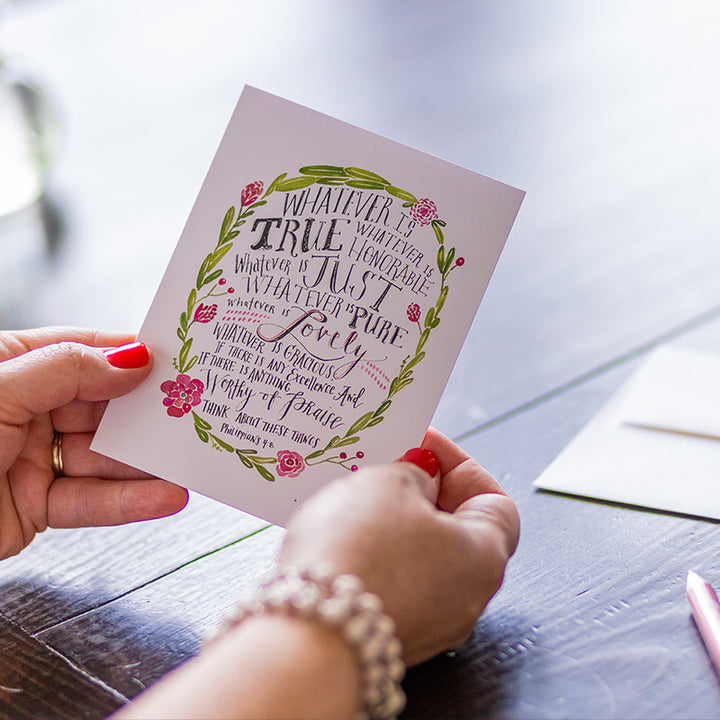 WHATEVER IS
TRUE WHATEVER IS
HONORABLE
Whatever is JUST
WHATEVER IS PURE
whatever is Lovely
WHATEVER IS GRACIOUS
IF THERE IS ANY Excellence AND
IF THERE IS ANYTHING
Worthy of Praise
THINK ABOUT THESE THINGS
Philippians 4:8